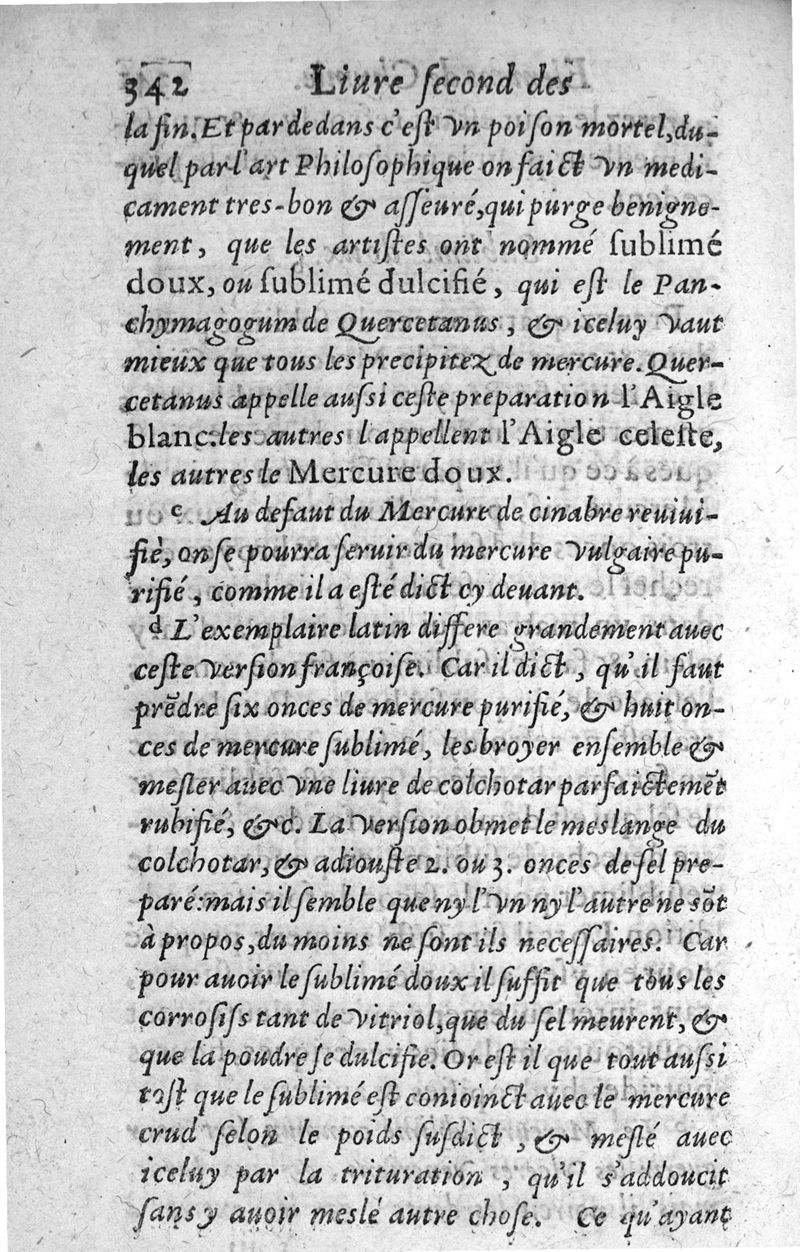 342 Liure ſecond des
la fin. Et par dedans c'eſt vn poiſon mortel, du-
quel par l'art Philoſophique on faict vn medi-
cament tres-bon & aſſeuré, qui purge benigne-
ment, que les artiſtes ont nommé ſublimé
doux, ou ſublimé dulcifié, qui eſt le Pan-
chymagogum de Quercetanus, & iceluy vaut
mieux que tous les precipitez de mercure. Quer-
cetanus appelle auſsi ceſte preparation l'Aigle
blanc: les autres l'appellent l'Aigle celeſte,
les autres le Mercure doux.
c Au defaut du Mercure de cinabre reuiui-
fiè, on ſe pourra ſeruir du mercure vulgaire pu-
rifié, comme il a eſté dict cy deuant.
d L'exemplaire latin differe grandement auec
ceſte verſion françoiſe. Car il dict, qu'il faut
prẽdre ſix onces de mercure purifié, & huit on-
ces de mercure ſublimé, les broyer enſemble &
meſler auec vne liure de colchotar parfaictemẽt
rubifié, &c. La verſion obmet le meslange du
colchotar, & adiouſte 2. ou 3. onces de ſel pre-
paré: mais il ſemble que ny l'vn ny l'autre ne sõt
à propos, du moins ne ſont ils neceſſaires. Car
pour auoir le ſublimé doux il ſuffit que tous les
corroſifs tant de vitriol, que du ſel meurent, &
que la poudre ſe dulcifie. Or eſt il que tout auſsi
toſt que le ſublimé eſt conioinct auec le mercure
crud ſelon le poids ſuſdict, & meſlé auec
iceluy par la trituration, qu'il s'addoucit
ſans y auoir meslé autre choſe. Ce qu'ayant